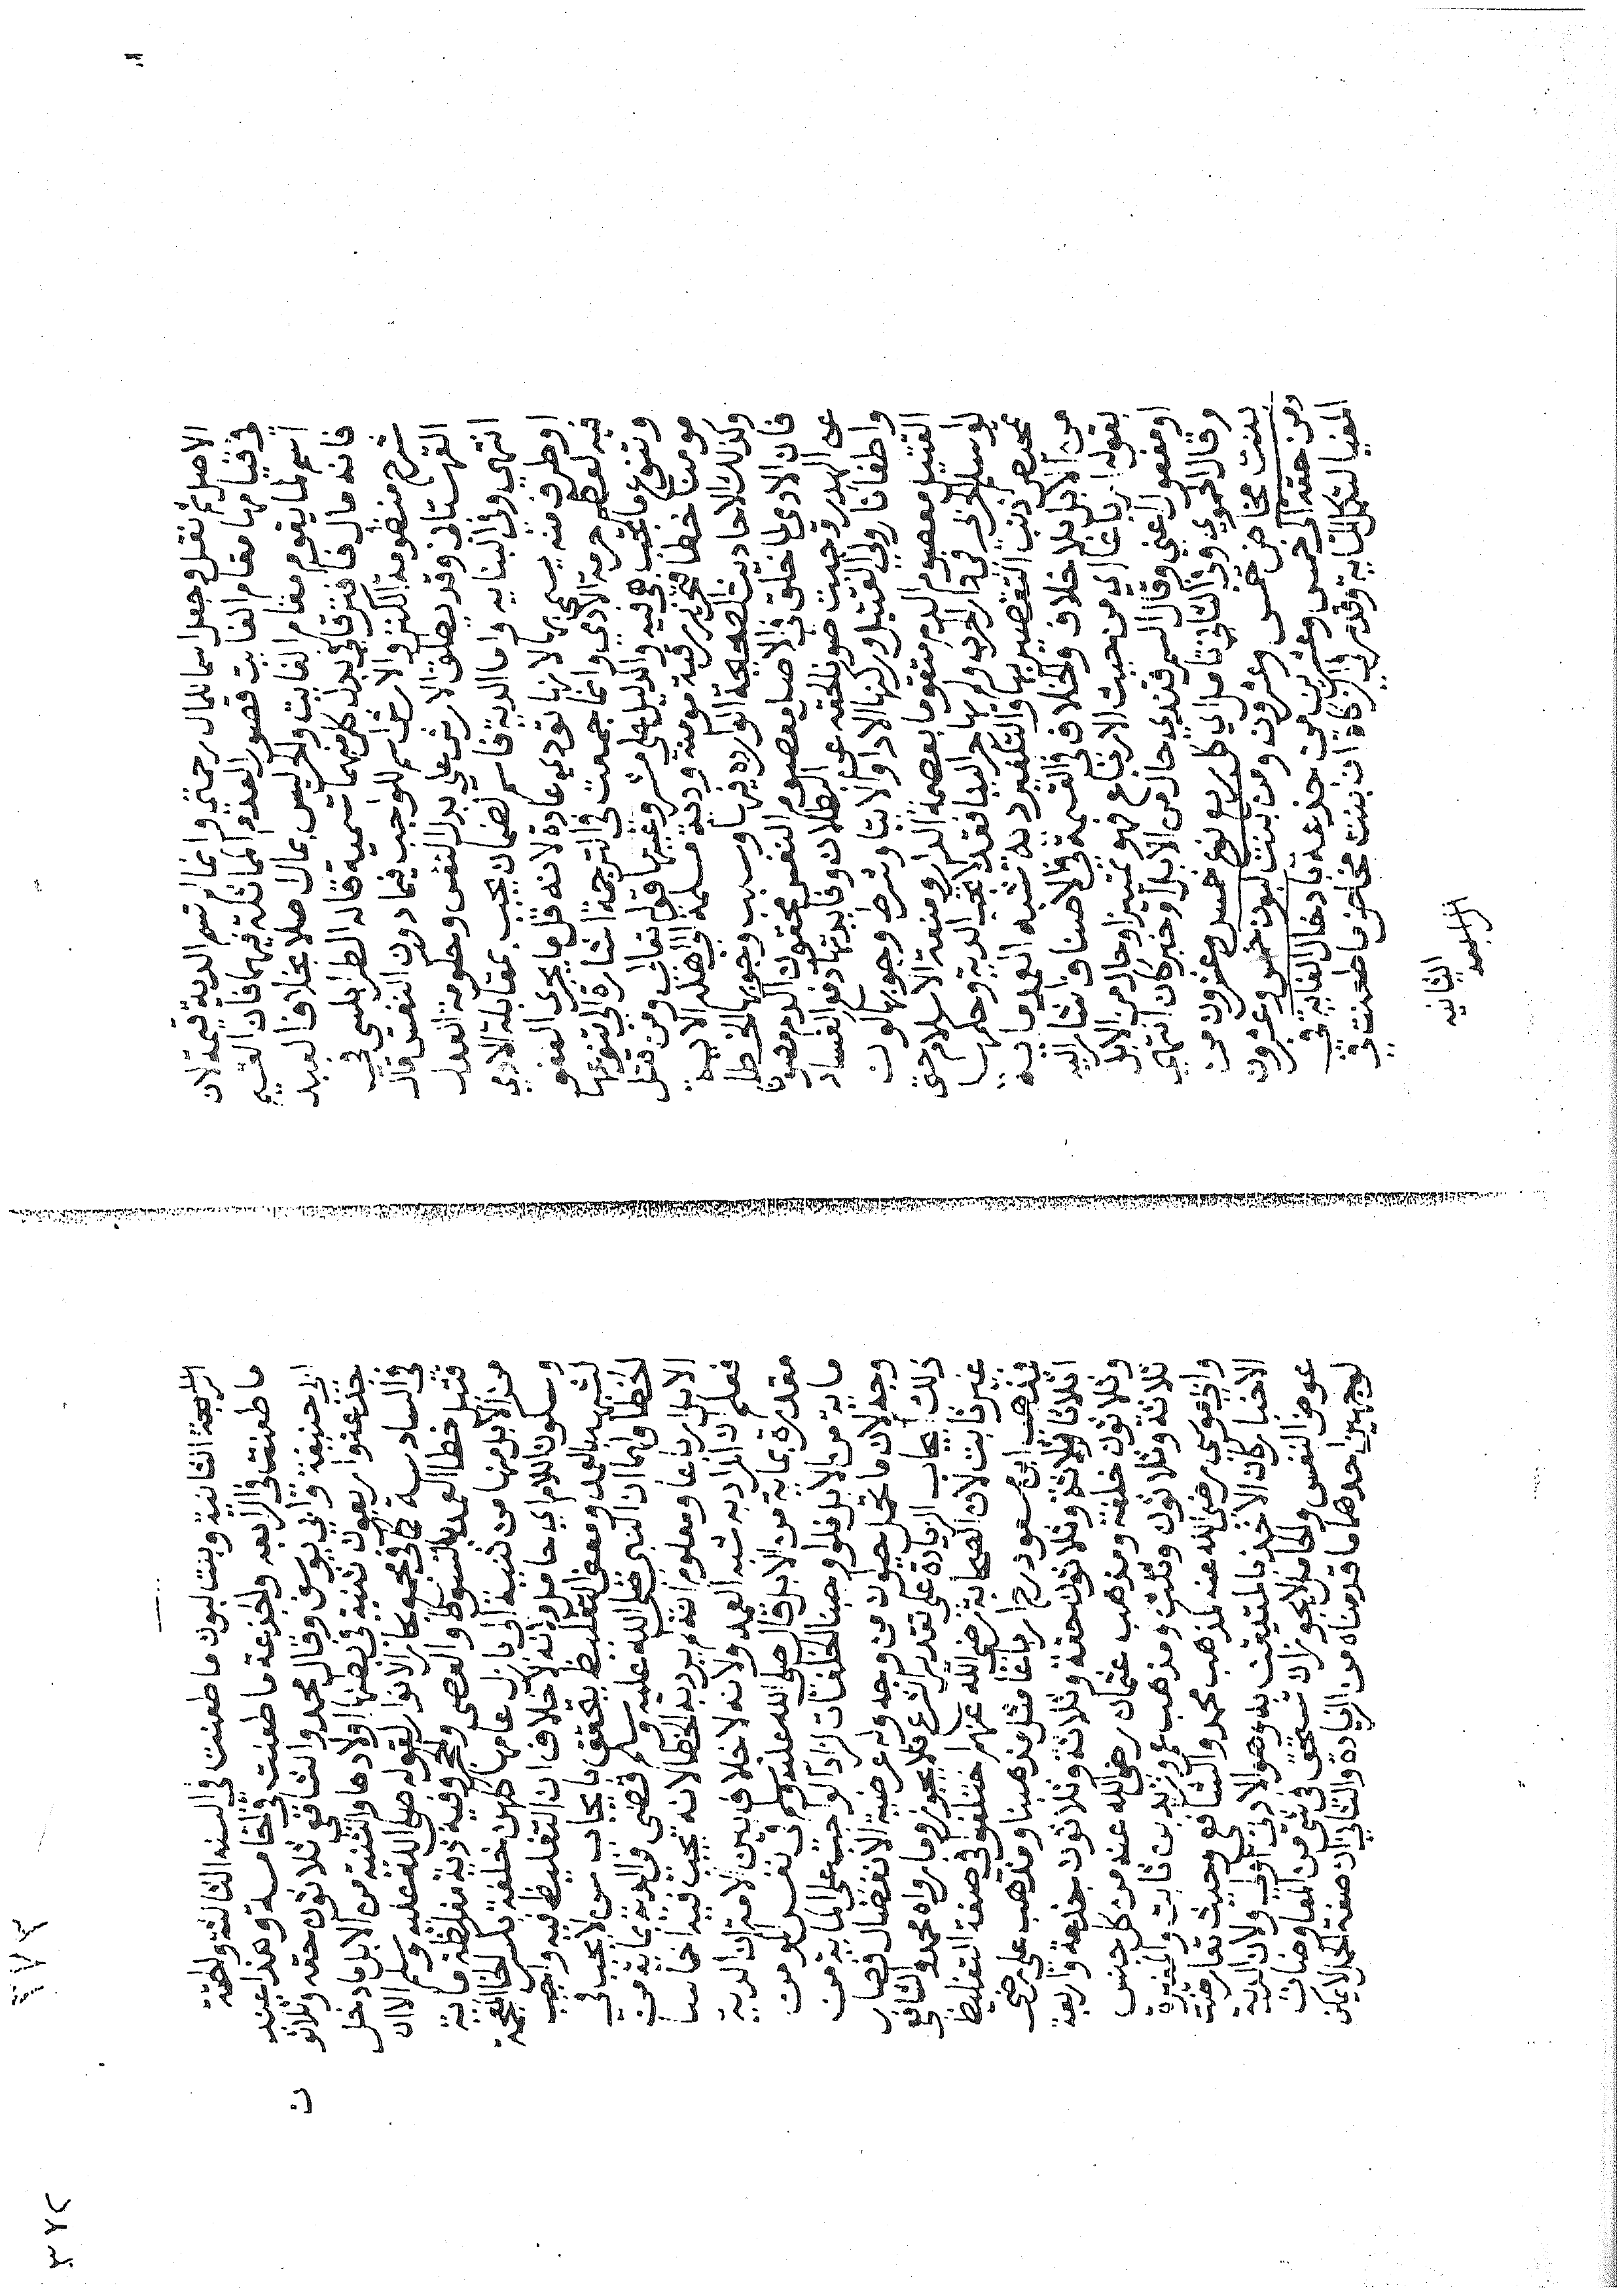 الاصل ثم نقل وجعل اسما للمال رحمتي وانما لم تسم الدية قيمة لان
في قيامها مقام الفايت قصور لعدم المماثلة بينهما فان القيم
اسم لما يقوم مقام الفايت والحر ليس بمال اصلا بخلاف العبد
فانه مال فافترقا في بدل كل منهما تسمية قاله الطرابلسي في
شرح منظومة الكنز والارش اسم للواجب فيما دون النفس قال
القهستاني وقد يطلق الارش علي بدل النفس وحكومة العدل
انتهي وفي البنايه واما الدية فاسم لضمان يجب بمقابلة الادمي
او طرف منه يسمي بها لانها تودي عادة لانه قل ما يجري العفو
فيه لعظم حرمة الادمي وانما جمعت في الترجمة اشارة الي تنوعها
وتنوع ما تجب هي فيه والدليل علي مشروعيتها قوله تعالي ومن قتل
مومنا خطا فتحرير رقبة مومنة ودية مسلمة الي اهله الايه
وكذلك الاحاديث الصحيحة الواردة فيها وسبب وجوبها الخطا
فان الادمي لما خلق في الاصل معصوم النفس محقون الدم مصون
عن الهدر وجبت صونا لحقه عن البطلان وفايدتها دفع الفساد
واطفا نار ولي القتيل وركنها الادا والايتا وشرط وجوبها كون
القتيل معصوم الدم متقوما بعصمة الدار ومنعة الاسلام حتي
لو اسلم الحربي في دار الحرب ولم يهاجر الينا فقتل لا تجب الدية وحكمها
تمحيص ذنب التقصير بها والتكفير دية شبه العمد مايه
من الابل بلا خلاف والخلاف في القسمة في الاصناف اشار اليه
بقوله ارباعا اي من حيث الارباع فهو تمييز او حال من الابل
او مفعول اعني وقال السمرقندي حال من الابل او خبر كان انتهي
وقال الحموي وفي الثاني تامل اي كل ربع نوع خمس وعشرون من
بنت مخاض خمس وعشرون ومن بنت لبون خمس وعشرون
ومن حقه الي خمس وعشرين من جذعه بادخال الغاية في
المغيا لتكمل الماية وقد مر في الزكاة ان بنت مخاض ما طعنت في
الثانيه
الرابعه
الثانية وبنت لبون ما طعنت في السنه الثالثة والحقة
ما طعنت في الرابعه والجذعة ما طعنت في الخامسة وهذا عند
ابي حنيفة وابي يوسف وقال محمد والشافعي ثلاثون حقه وثلاثو
ن
جذعه واربعون ثنية في بطنها اولادها والثنية من الابل ما دخل
في السادسة كما في مجموع الانوار لقوله صلي الله عليه وسلم الا ان
قتيل خطا العمد بالسوط والعصي والحجر وفيه دية مغلظة ماية
من الابل منها من ثنية الي بازل عامها كلهن خلفة بكسر الخا المعجمة
وسكون اللام اي حامل ولانه لا خلاف ان التغليظ فيه واجب
لشبهه بالعمد ومعني التغليظ يتحقق بايجاب سن لا يجب في
الخطا ولهما ان النبي صلي الله عليه وسلم قضي في الدية بماية من
الابل ارباعا ومعلوم انه لم يرد به الخطا لانه يجب فيه اخماسا
فعلم ان المراد به شبه العمد ولانه لا خلاف بين الامة ان الدية
مقدرة بماية من الابل قال صلي الله عليه وسلم في نفس المومن
ماية من الابل فلو اوجبنا الخلفات لزاد الواجب علي الماية من
وجه لان ما تحمل حيوان من وجه وله عرضية الانفصال فصار
ذلك ايجاب الزيادة علي تقدير الشرع فلا يجوز وما رواه محمد والشافعي
غير ثابت لان الصحابة رضي الله عنهم اختلفوا في صفة التغليظ
فذهب ابن مسعود رضي ارباعا مثل مذهبنا ومذهب علي رضي
اثلاثا ثلاثة وثلاثون حقة وثلاثة وثلاثون جذعة واربعة
وثلاثون خلفة ومذهب عثمان رضي الله عنه من كل جنس
ثلاثة وثلاثون وثلث ومذهب عمر وزيد بن ثابت والمغيرة
وابي موسي رضي الله عنه كمذهب محمد والشافعي وحيث تعارضت
الاخبار كان الاخذ بالمتيقن به وهو الادني اولي ولان الدية
عوض النفس والحامل لا يجوز ان تستحق في شي من المعاوضات
لوجهين احدهما ما قدمناه من الزيادة والثاني ان صفة الحمل لا يمكن
٣٧٢